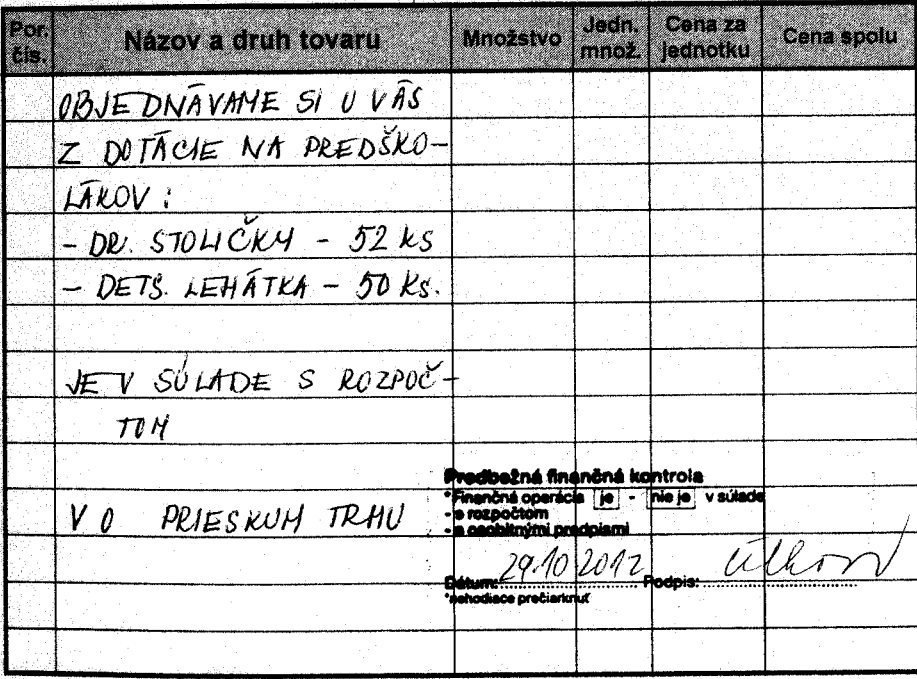 Por. čís. Názov a druh tovaru Množstvo Jedn. množ. Cena za jednotku Cena spolu
OBJEDNÁVAME SI U VÁS
Z DOTÁCIE NA PREDŠKO-
LÁKOV :
- DR. STOLIČKY - 52 ks
- DETS. LEHÁTKA - 50 ks.
JE V SÚLADE S ROZPOČ-
TOM
Predbežná finančná kontrola
*Finančná operácia je - nie je v súlade
- s rozpočtom
V O PRIESKUM TRHU
- s osobitnými predpismi
Dátum: 29.10 2012 Podpis:
*nehodiace prečiarknuť